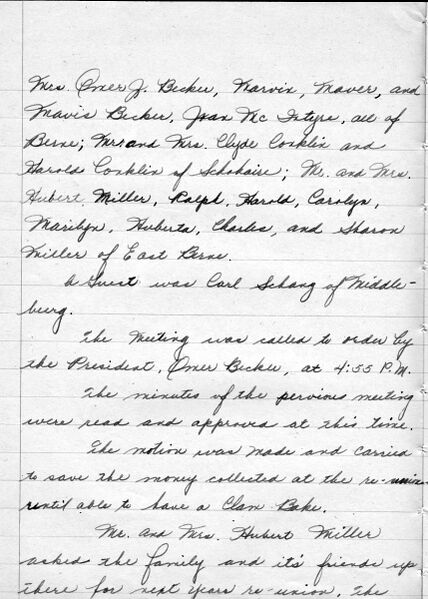 Mrs. Omer J. Becker, Marvin, Maver, and
Mavis Becker, Joan Mc Intyre, all of
Berne; Mr and Mrs. Clyde Conklin and
Harold Conklin of Schoharie; Mr. and Mrs.
Hubert Miller, Ralph, Harold, Carolyn,
Marilyn, Huberta, Charles, and Sharon
Miller of East Berne.
A Guest was Carl Schang of Middle-
burg.
The Meeting was called to order by
the President, Omer Becker, at 4:55 P.M.
The minutes of the pervious meeting
were read and approved at this time.
The motion was made and carried
to save the money collected at the re-union
until able to have a Clam Bake.
Mr. and Mrs. Hubert Miller
asked the family and it's friends up
there for next years re-union. The